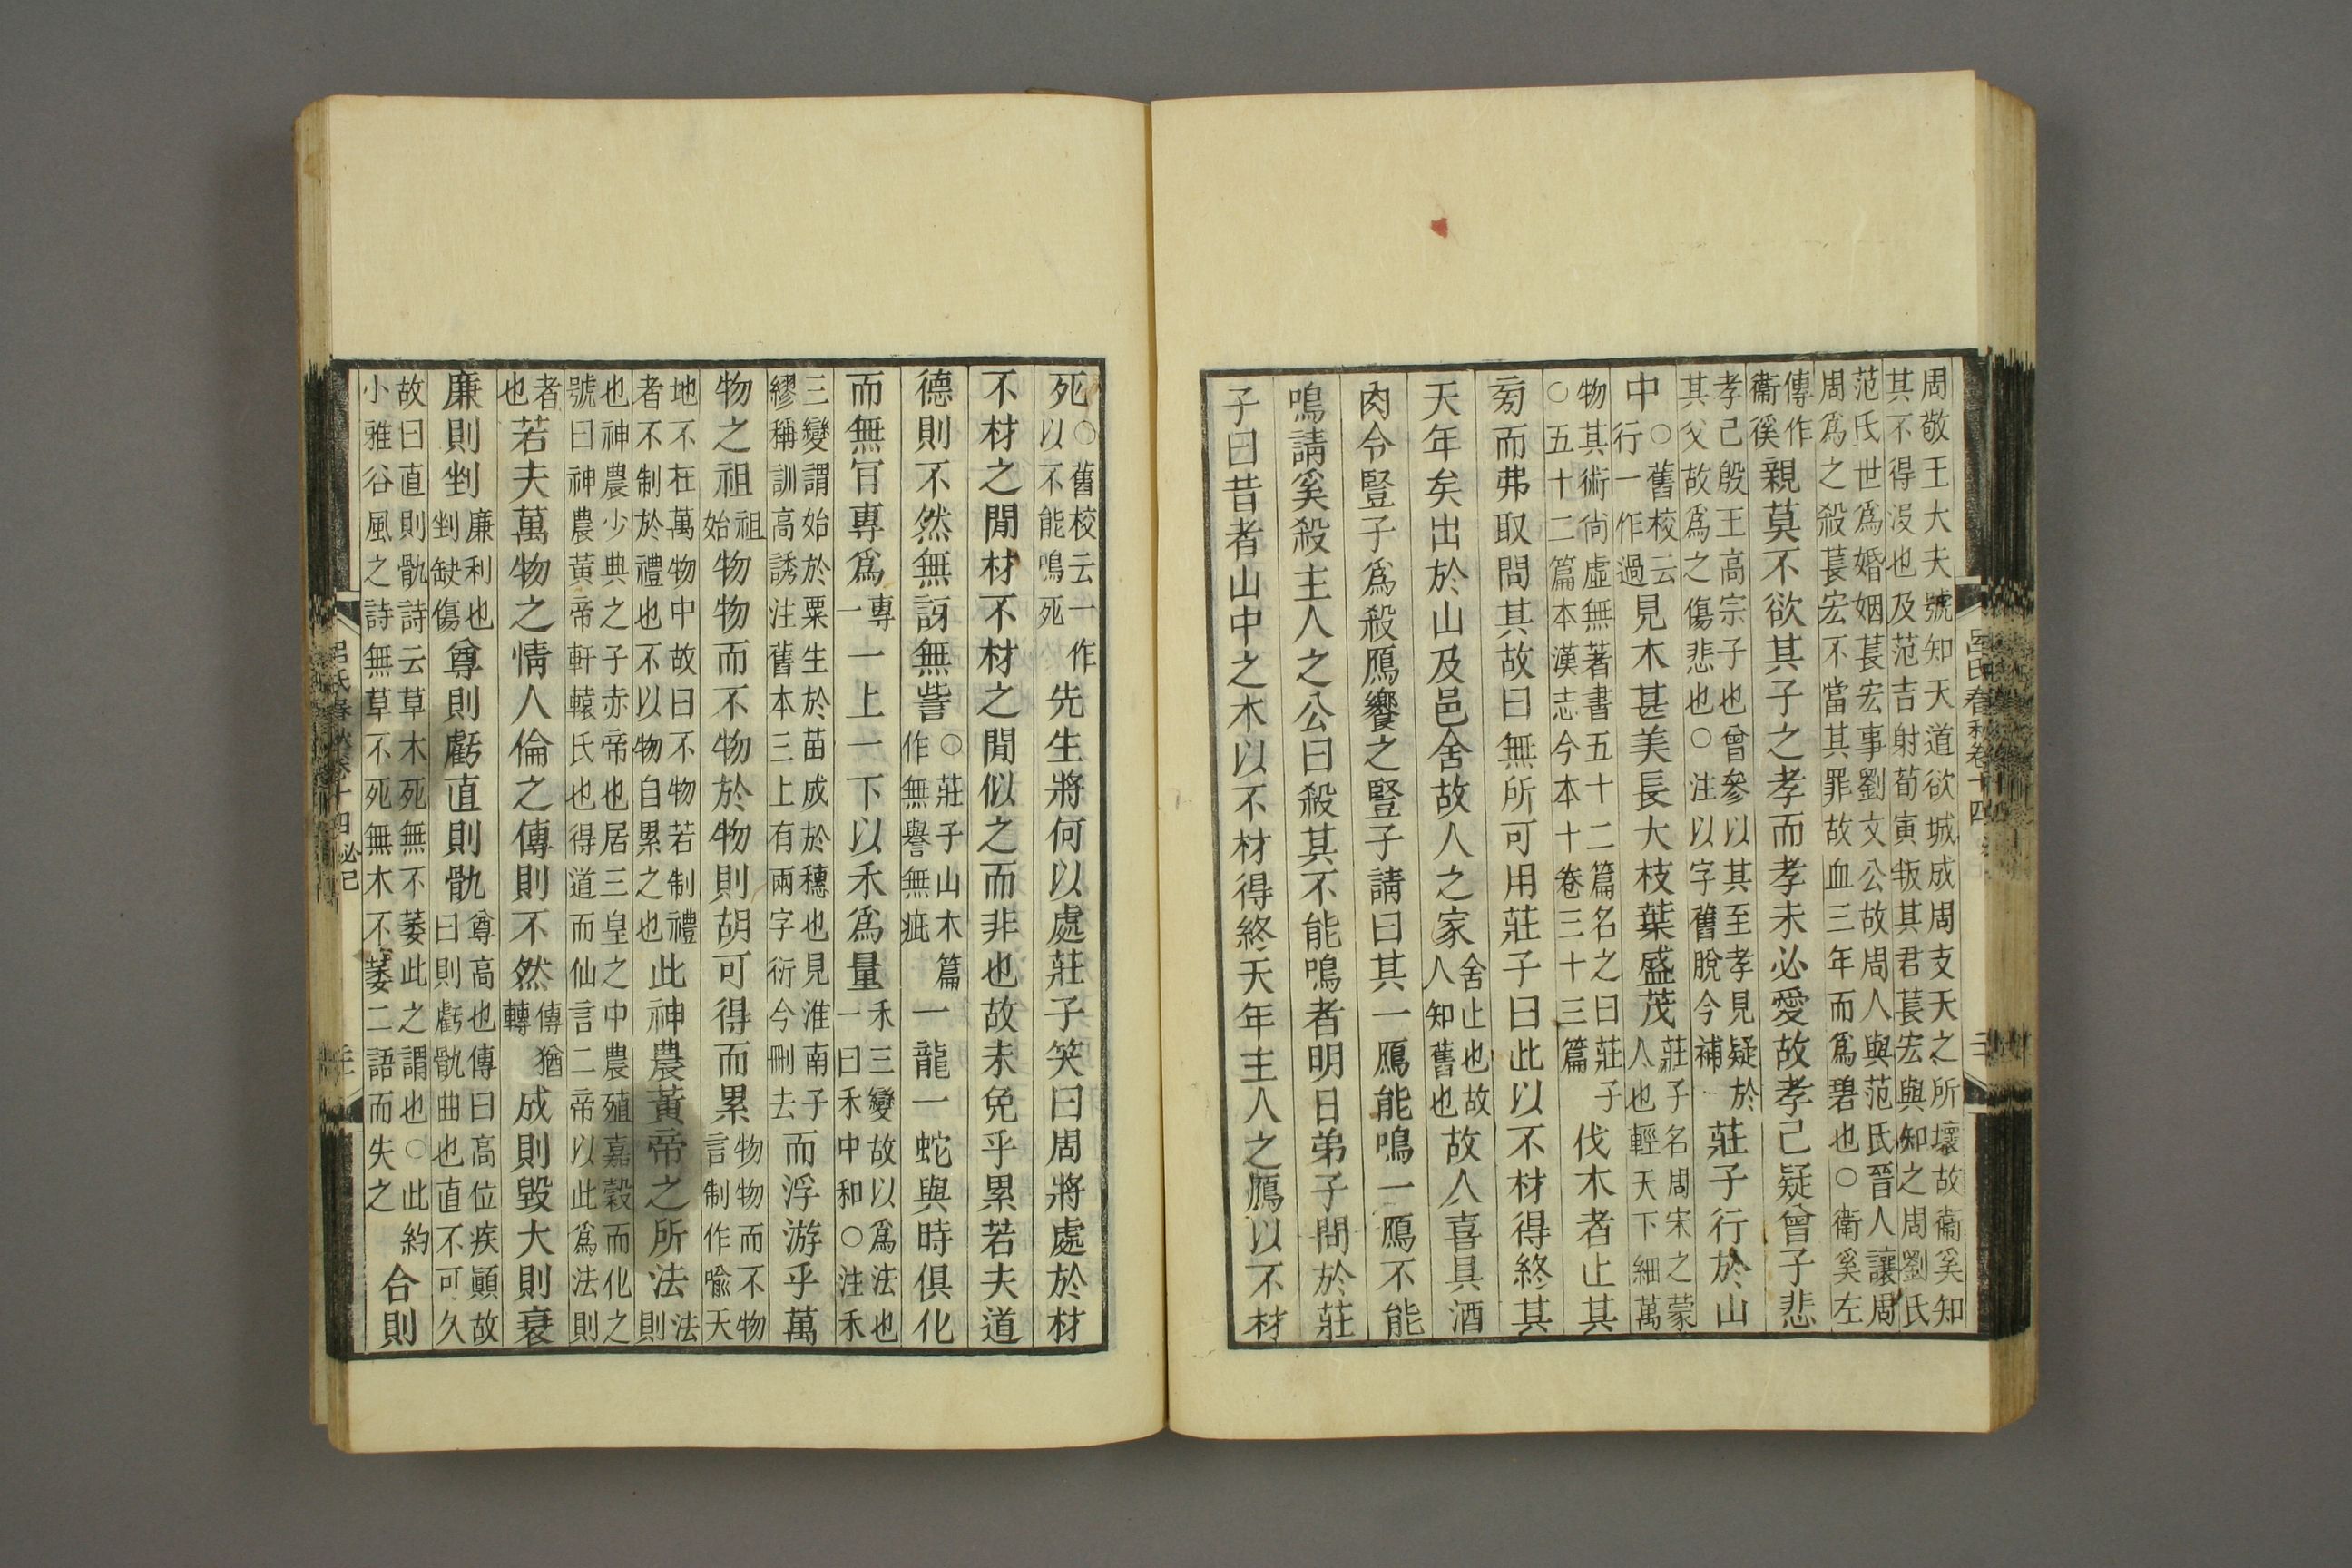 周敬王大夫號知天道欲城成周支天之所壞故衞奚知
其不得沒也及范吉射荀寅叛其君萇宏與知之周劉氏
范氏世爲婚姻萇宏事劉文公故周人與范氏晉人讓周
周爲之殺萇宏不當其罪故血三年而爲碧也○衞奚左
傳作衞徯親莫不欲其子之孝而孝未必愛故孝己疑曾子悲
孝己殷王高宗子也曾參以其至孝見疑於其父故爲之傷悲也○注以字舊脫今補莊子行於山
中○舊校云行一作過見木甚美長大枝葉盛茂莊子名周宋之蒙人也輕天下細萬
物其術尙虛無著書五十二篇名之曰莊子○五十二篇本漢志今本十卷三十三篇伐木者止其
旁而弗取問其故曰無所可用莊子曰此以不材得終其
天年矣出於山及邑舍故人之家舍止也故人知舊也故人喜具酒
肉令豎子爲殺鴈饗之豎子請曰其一鴈能鳴一鴈不能
鳴請奚殺主人之公曰殺其不能鳴者明日弟子問於莊
子曰昔者山中之木以不材得終天年主人之鴈以不材
呂氏春秋卷十四
三
死○舊校云一作以不能鳴死先生將何以處莊子笑曰周將處於材
不材之閒材不材之閒似之而非也故未免乎累若夫道
德則不然無訝無訾○莊子山木篇作無譽無疵一龍一蛇與時俱化
而無肎專爲專一一上一下以禾爲量禾三變故以爲法也一曰禾中和○注禾
三變謂始於粟生於苗成於穗也見淮南子繆稱訓高誘注舊本三上有兩字衍今刪去而浮游乎萬
物之祖祖始物物而不物於物則胡可得而累物物而不物言制作喻天
地不在萬物中故曰不物若制禮者不制於禮也不以物自累之也此神農黃帝之所法法則
也神農少典之子赤帝也居三皇之中農殖嘉穀而化之
號曰神農黃帝軒轅氏也得道而仙言二帝以此爲法則
者也若夫萬物之情人倫之傳則不然傳猶轉成則毀大則衰
廉則剉廉利也剉缺傷尊則虧直則骫尊高也傳曰高位疾顚故曰則虧骫曲也直不可久
故曰直則骫詩云草木死無不萎此之謂也○此約小雅谷風之詩無草不死無木不萎二語而失之合則
呂氏春秋卷十四必己
三